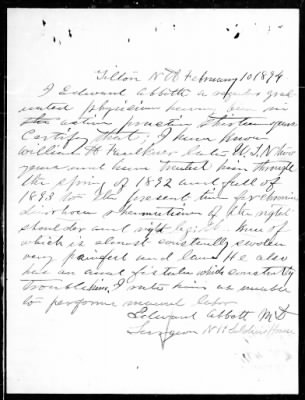 Tilton N H February 10 1894
I Edward Abbott a regular grad
uated physician have been in
the active practice thirteen years
Certify that I have known
William H Faulkner late
years and have treated him through
the spring of 1892 and fall of
1893 to the present time for chronic
diarrhoea rheumatism of the right
shoulder and right leg knee of
which is almost constantly swolen
very painful and lame He also
has an anal fistula which constantly
troubles him. I rate him as unable
to perform manual labor
Edward Abbott M D
Surgeon N H Soldiers Home